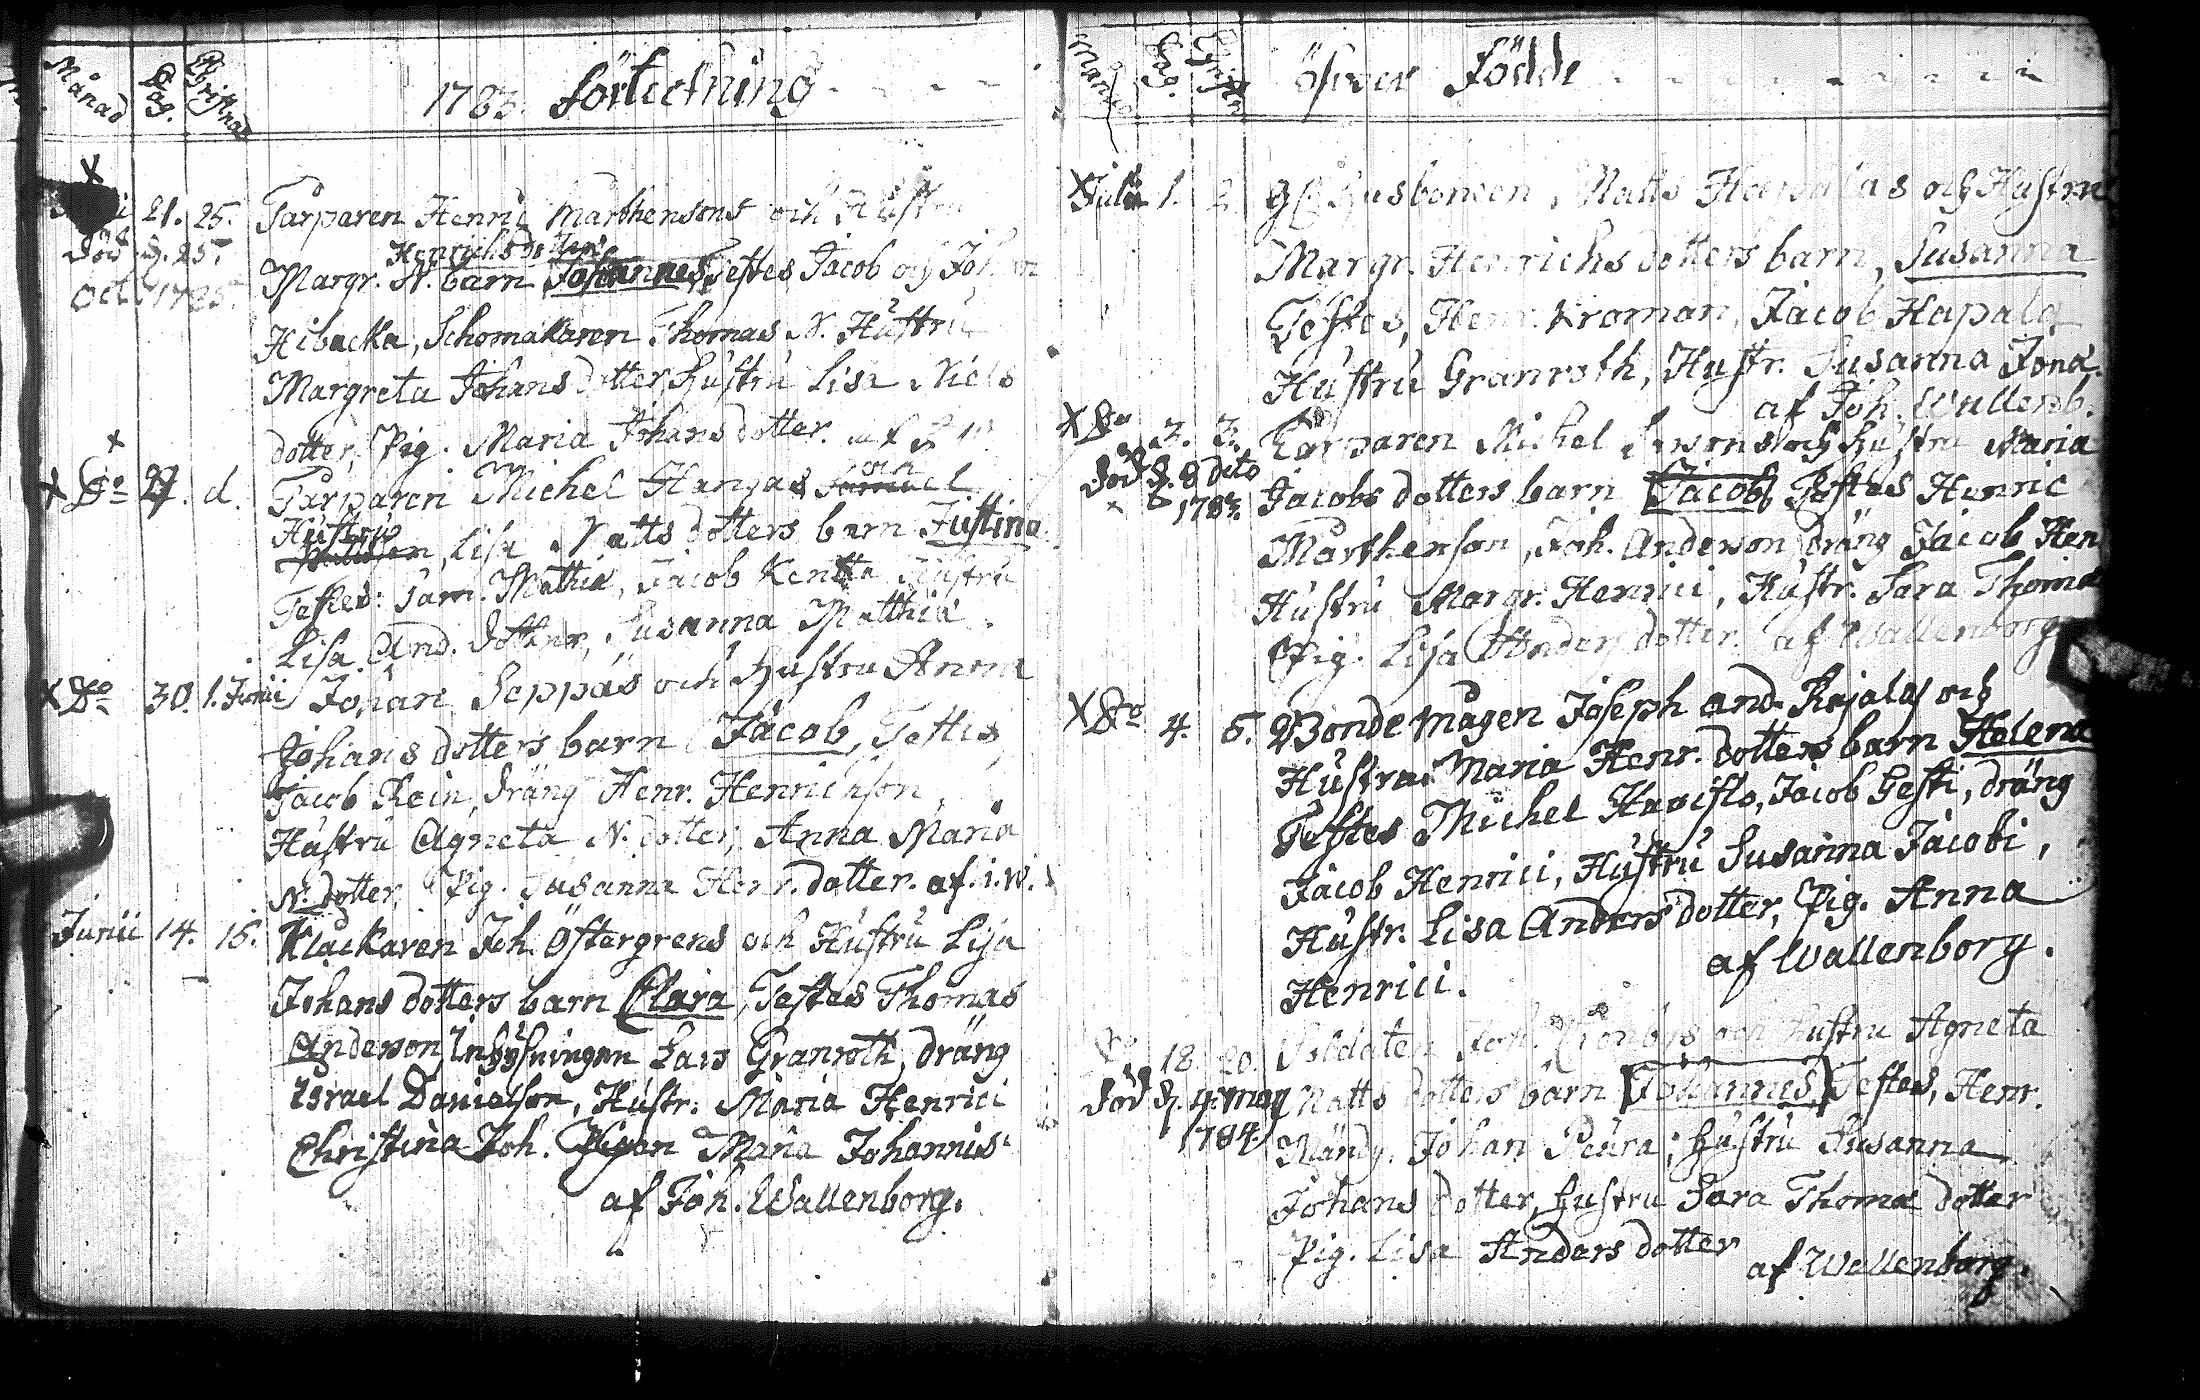 Månad Dag. Christnad 1783. Förtectning
X
21. 25. Tårparen Henric Mårthensons och Hustru
Död d. 25. Henrichsdotter
Oct. 1785. Margr. N. barn Johannes, Testes Jacob och Johan
Hibacka, Schomakaren Thomas N. Hustru
Margreta Johans dotter, Hustru Lisa Niels
dotter, Pig. Maria Johans dotter. af
X
X Do 27. d. Tårparen Michel Hangas och Samuel
Hustru
Lisa Matts dotters barn Justina
Testes: Sam. Mathiæ, Jacob Kentta Hustru
Lisa And. dotter, Susanna Matthiæ.
X Do 30. 1. Junii Johan Seppäs och Hustru Anna
Johans dotters barn Jacob, Testes
Jacob Rein, dräng Henr. Henrichson,
Hustru Agneta N. dotter, Anna Maria
N. dotter, Pig. Susanna Henr. dotter. af. i. W.
Junii 14. 15. Klåckaren Joh. Östergrens och Hustru Lisa
Johans dotters barn Clara, Testes Thomas
Anderson Inhysningen Lars Granroth, dräng
Israel Danielson, Hustr. Maria Henrici
Christina Joh. Pigan Maria Johannis
af Joh. Wallenborg.
Månad Dag. Christn öfver Födde
X Julii 1. 2. Husbonden, Matts Hapalas och Hustru
Margr. Henrichs dotters barn, Susanna
Testes, Henr. Kroman, Jacob Hapala
Hustru Granroth, Hustr. Susanna Jona.
af Joh. Wallenb.
X Do 2. 3. Tårparen Michel och Hustru Maria
Död d. 8 dito Jacobs dotters barn Jacob, Testes Henric
1783. Mårthenson, Joh. Anderson dräng Jacob Hen
Hustru Margr. Henrici, Hustr. Sara Thomæ
Pig. Lisa Anders dotter. af Wallenborg
X Do 4. 5. Bonde mågen Joseph And. Rajalas och
Hustrus Maria Henr. dotters barn Helena
Testes Michel Havisto, Jacob Gesti, dräng
Jacob Henrici, Hustru Susanna Jacobi,
Hustr. Lisa Anders dotter, Pig. Anna
af Wallenborg.
Henrici.
Do 18. 20. Soldaten Joh. och Hustru Agneta
Död d. 4. may Matts dotters barn Johannes, Testes, Henr.
1784. Johan Peura, Hustru Susanna
Johans dotter, Hustru Sara Thomæ dotter
Pig. Lisa Anders dotter
af Wallenborg.